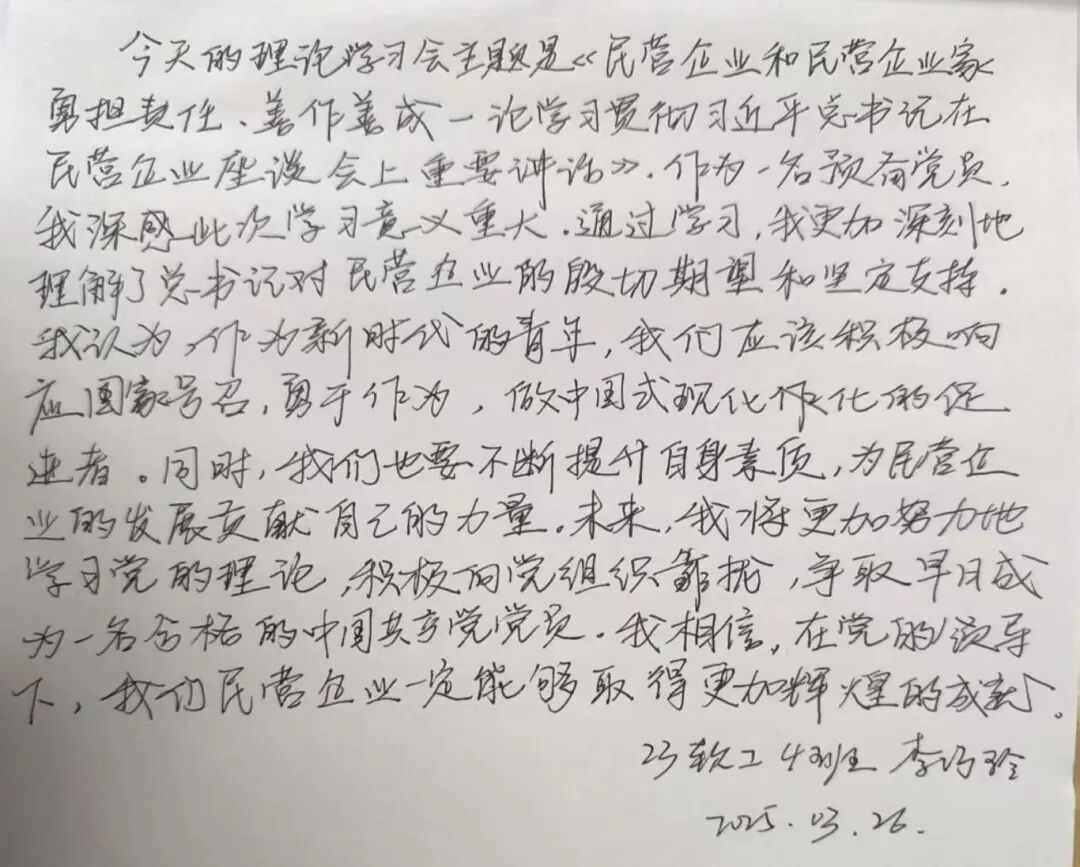 今天的理论学习会主题是《民营企业和民营企业家
勇担责任、善作善成一论学习贯彻习近平总书记在
民营企业座谈会上重要讲话》.作为一名预备党员,
我深感此次学习意义重大.通过学习,我更加深刻地
理解了总书记对民营企业的殷切期望和坚定支持.
我认为,作为新时代的青年,我们应该积极响
应国家号召,勇于作为,做中国式现化化的促
进者。同时,我们也要不断提升自身素质,为民营企
业的发展贡献自己的力量.未来,我将更加努力地
学习党的理论,积极向党组织靠拢,争取早日成
为一名合格的中国共产党党员.我相信,在党的领导
下,我们民营企业一定能够取得更加辉煌的成就.
23软工4班 李玲
2025.03.26.